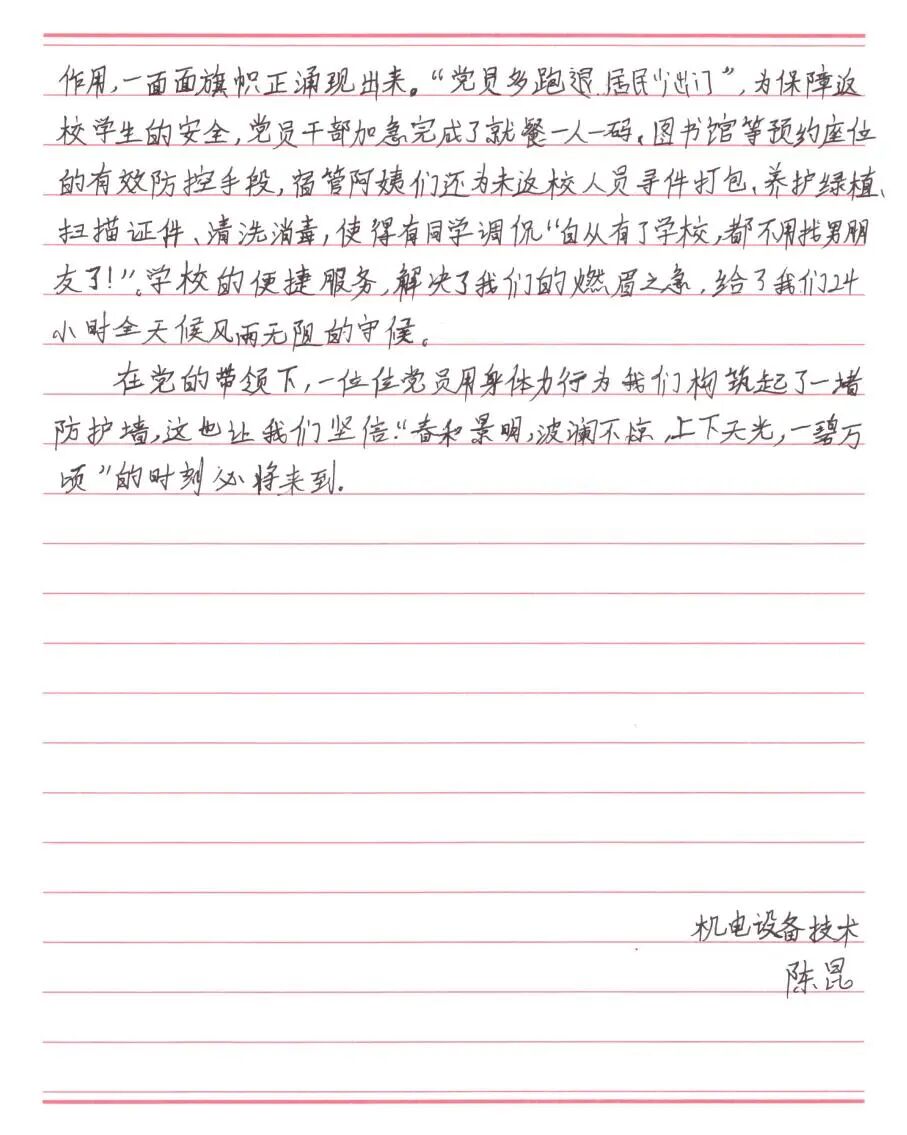 作用,一面面旗帜正涌现出来。“党员多跑腿 居民少出门”,为保障返
校学生的安全,党员干部加急完成了就餐一人一码、图书馆等预约座位
的有效防控手段,宿管阿姨们还为未返校人员寻件打包、养护绿植、
扫描证件、清洗消毒,使得有同学调侃“自从有了学校,都不用找男朋
友了!”。学校的便捷服务,解决了我们的燃眉之急,给了我们24
小时全天候风雨无阻的守候。
在党的带领下,一位位党员用身体力行为我们构筑起了一堵
防护墙,这也让我们坚信:“春和景明,波澜不惊,上下天光,一碧万
顷”的时刻必将来到.
机电设备技术
陈昆